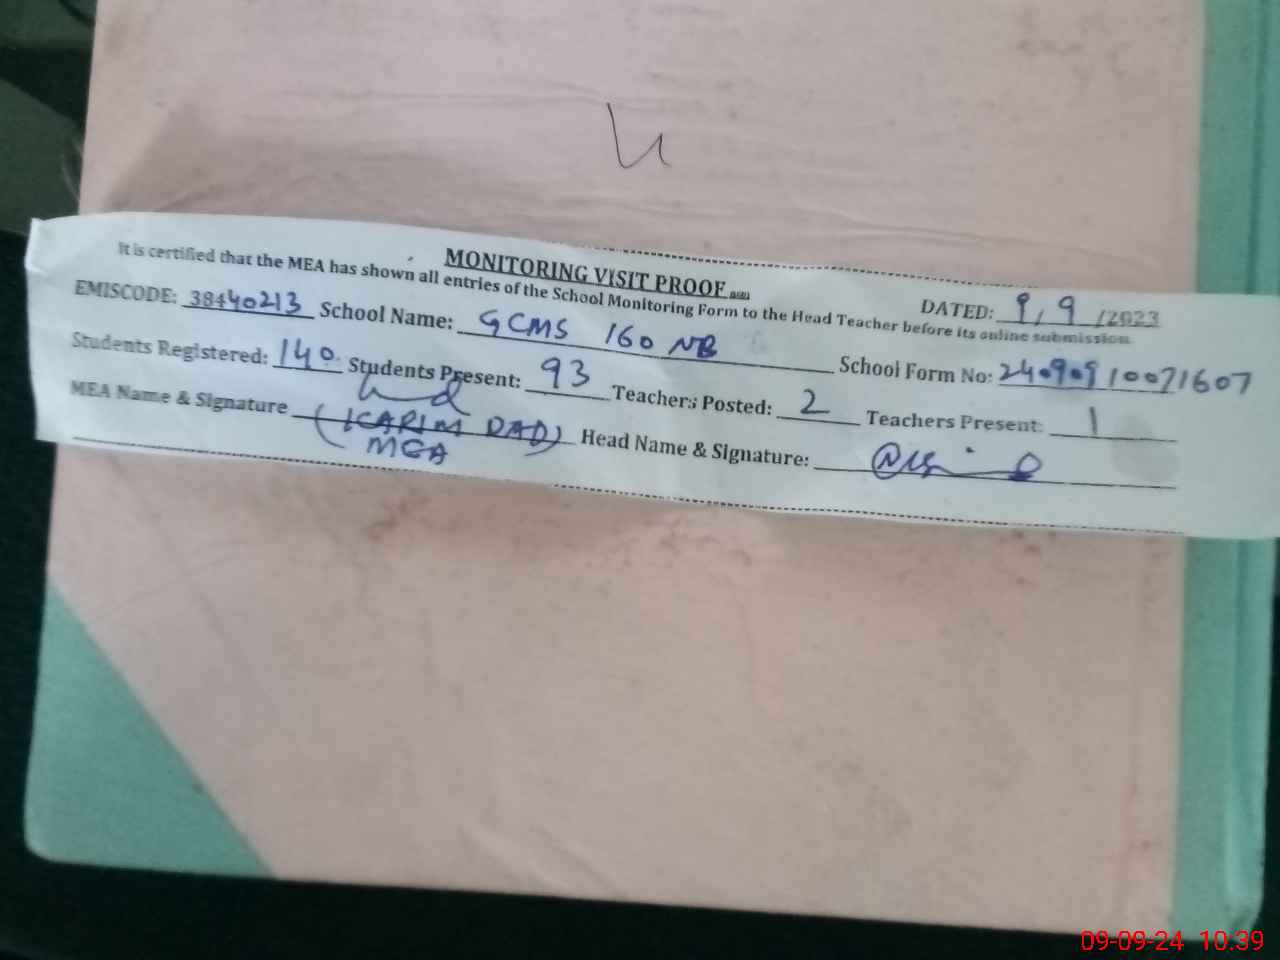 MONITORING VISIT PROOF
It is certified that the MEA has shown all entries of the School Monitoring Form to the Head Teacher before its online submission.
DATED: 9, 9 /2023
EMISCODE: 38440213 School Name: GCMS 160 NB School Form No: 24090910071607
Students Registered: 140 Students Present: 93 Teachers Posted: 2 Teachers Present: 1
MEA Name & Signature (KARIM DAD) Head Name & Signature:
MEA
09-09-24 10:39